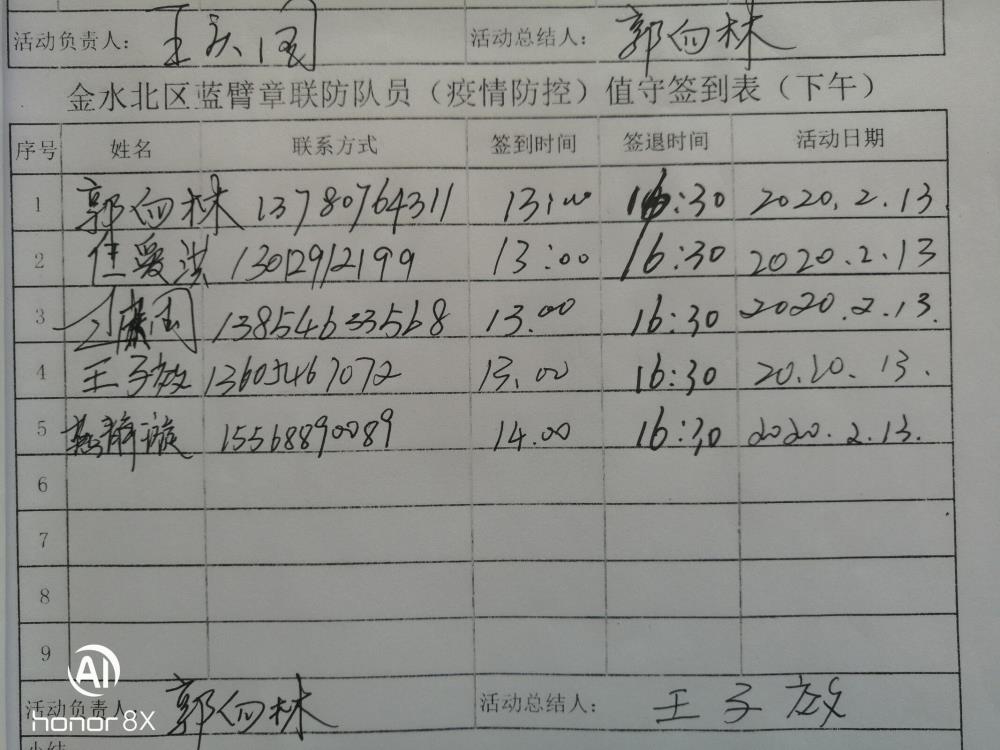 活动负责人： 王 活动总结人： 郭向林
金水北区蓝臂章联防队员（疫情防控）值守签到表（下午）
序号 姓名 联系方式 签到时间 签退时间 活动日期
1 郭向林 13780764311 13:00 16:30 2020.2.13
2 爱洪 13012912199 13:00 16:30 2020.2.13
3 13854633568 13.00 16:30 2020.2.13.
4 王子放 13605467072 13.00 16:30 20.20.13.
5 15568890089 14.00 16:30 2020.2.13.
6
7
8
9
活动负责人： 郭向林 活动总结人： 王子放
AI
honor 8X
小结